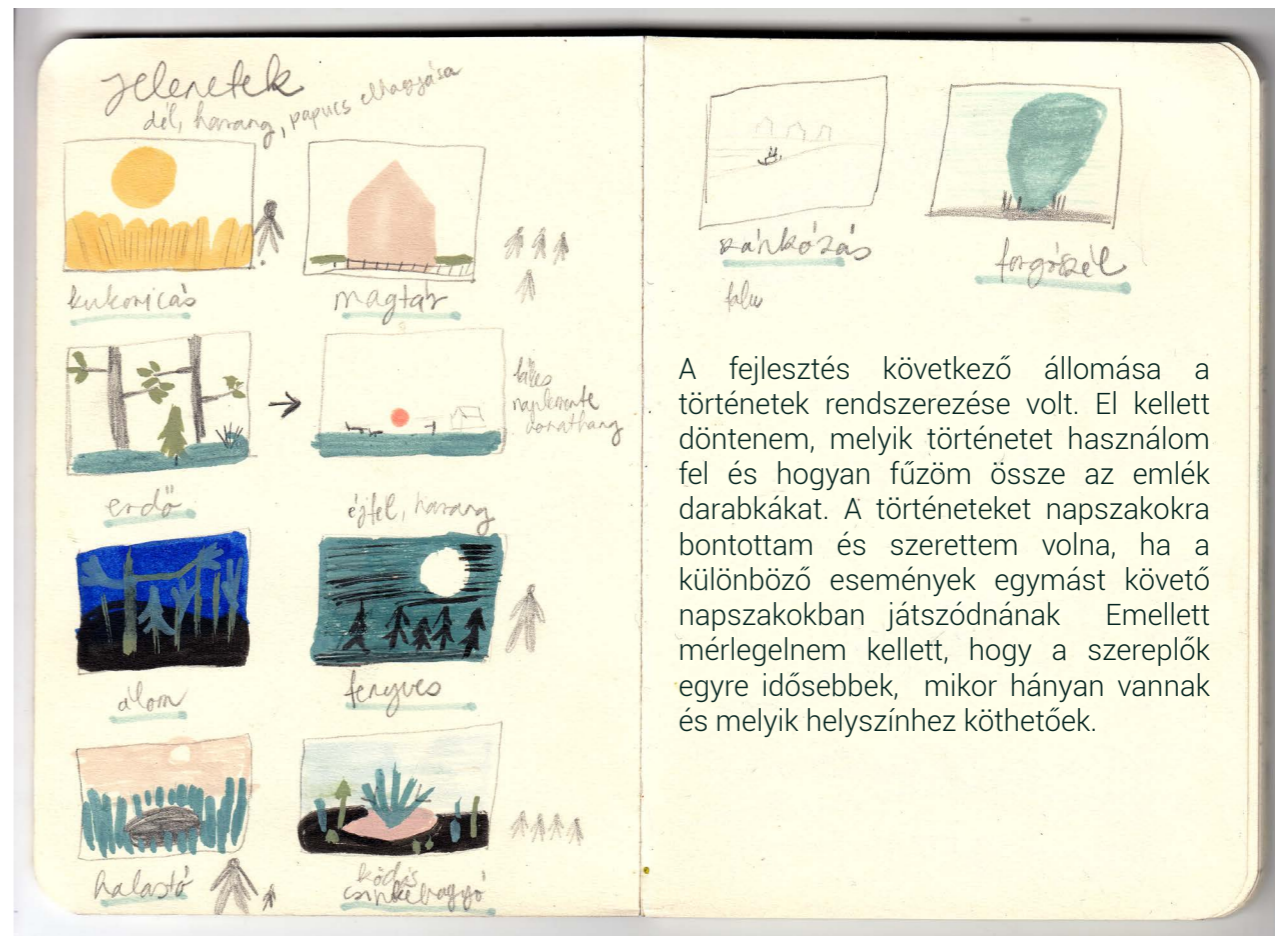 Jelenetek
dél, harang, papucs elhagyása
kukoricás
magtár
erdő
naplemente
éjfél, harang
álom
fenyves
halastó
ködös
szánkózás
falu
forgószél
A fejlesztés következő állomása a
történetek rendszerezése volt. El kellett
döntenem, melyik történetet használom
fel és hogyan fűzöm össze az emlék
darabkákat. A történeteket napszakokra
bontottam és szerettem volna, ha a
különböző események egymást követő
napszakokban játszódnának Emellett
mérlegelnem kellett, hogy a szereplők
egyre idősebbek, mikor hányan vannak
és melyik helyszínhez köthetőek.